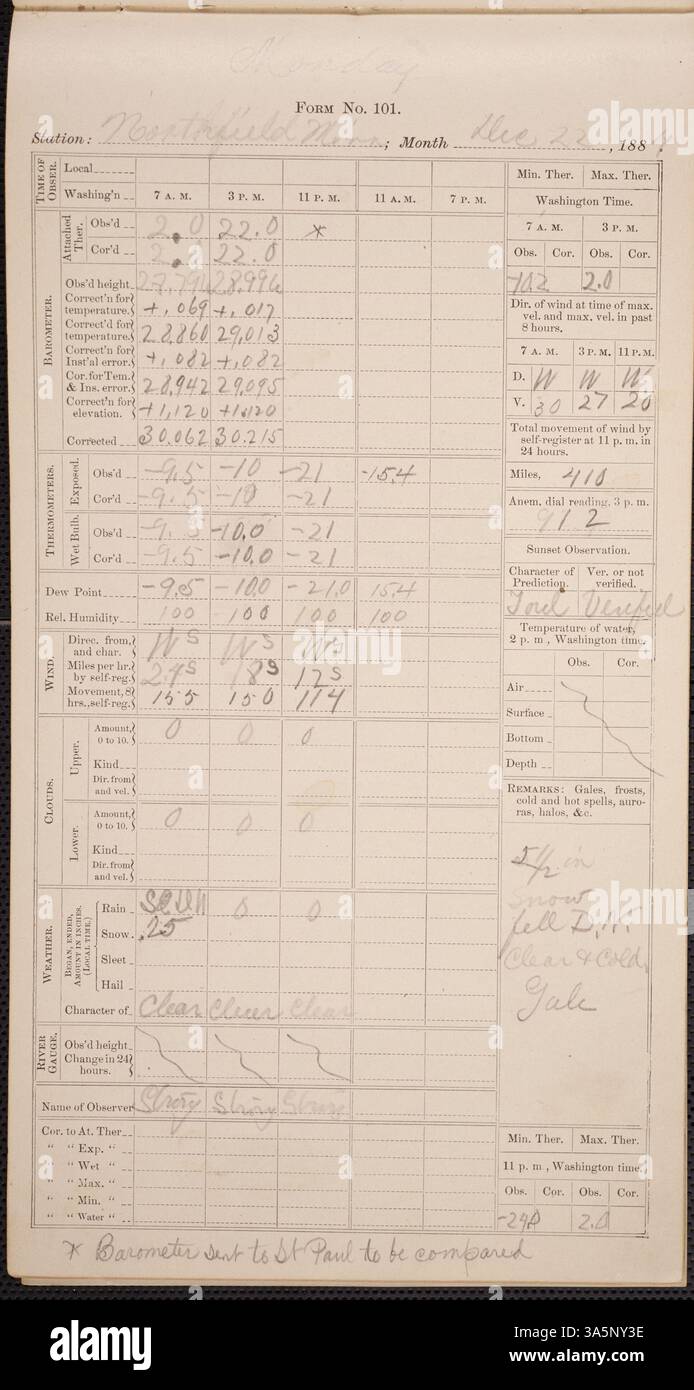 Monday
FORM NO. 101.
Station: Northfield Minn; Month Dec 22, 1884.
TIME OF OBSER. Local
Washing'n 7 A. M. 3 P. M. 11 P. M. 11 A. M. 7 P. M.
BAROMETER.
Attached Ther. Obs'd 2.0 22.0 *
Cor'd 2. 22.0
Obs'd height 28.996
Correct'n for temperature. +.069 +.017
Correct'd for temperature. 28.860 29.013
Correct'n for Inst'al error. +.082 +.082
Cor. for Tem. & Ins. error. 28.942 29.095
Correct'n for elevation. +1.120 +1.120
Corrected 30.062 30.215
THERMOMETERS.
Exposed. Obs'd -9.5 -10 -21 -15.4
Cor'd -9.5 -10 -21
Wet Bulb. Obs'd -9.5 -10.0 -21
Cor'd -9.5 -10.0 -21
Dew Point -9.5 -10.0 -21.0 15.4
Rel. Humidity 100 100 100 100
WIND.
Direc. from, and char. W S W S W S
Miles per hr. by self-reg. 24 S 18 S 17 S
Movement, 8 hrs., self-reg. 155 150 114
CLOUDS.
Upper. Amount, 0 to 10. 0 0 0
Kind
Dir. from and vel.
Lower. Amount, 0 to 10. 0 0 0
Kind
Dir. from and vel.
WEATHER.
BEGAN, ENDED, AMOUNT IN INCHES. (LOCAL TIME.)
Rain 0 0
Snow .25
Sleet
Hail
Character of Clear Clear Clear
RIVER GAUGE.
Obs'd height
Change in 24 hours.
Name of Observer Strong Strong Strong
Cor. to At. Ther
" " Exp. "
" " Wet "
" " Max. "
" " Min. "
" " Water "
Min. Ther. Max. Ther.
Washington Time.
7 A. M. 3 P. M.
Obs. Cor. Obs. Cor.
2.0
Dir. of wind at time of max. vel. and max. vel. in past 8 hours.
7 A. M. 3 P. M. 11 P. M.
D. W W W
V. 30 27 20
Total movement of wind by self-register at 11 p. m. in 24 hours.
Miles, 410
Anem. dial reading, 3 p. m.
912
Sunset Observation.
Character of Prediction. Ver. or not verified.
Verified
Temperature of water, 2 p. m., Washington time.
Obs. Cor.
Air
Surface
Bottom
Depth
REMARKS: Gales, frosts, cold and hot spells, auroras, halos, &c.
5 1/2 in
snow
fell D.N.
Clear & Cold.
Gale
Min. Ther. Max. Ther.
11 p. m., Washington time.
Obs. Cor. Obs. Cor.
2.0
* Barometer sent to St Paul to be compared
alamy
Image ID: 3A5NY3E
www.alamy.com